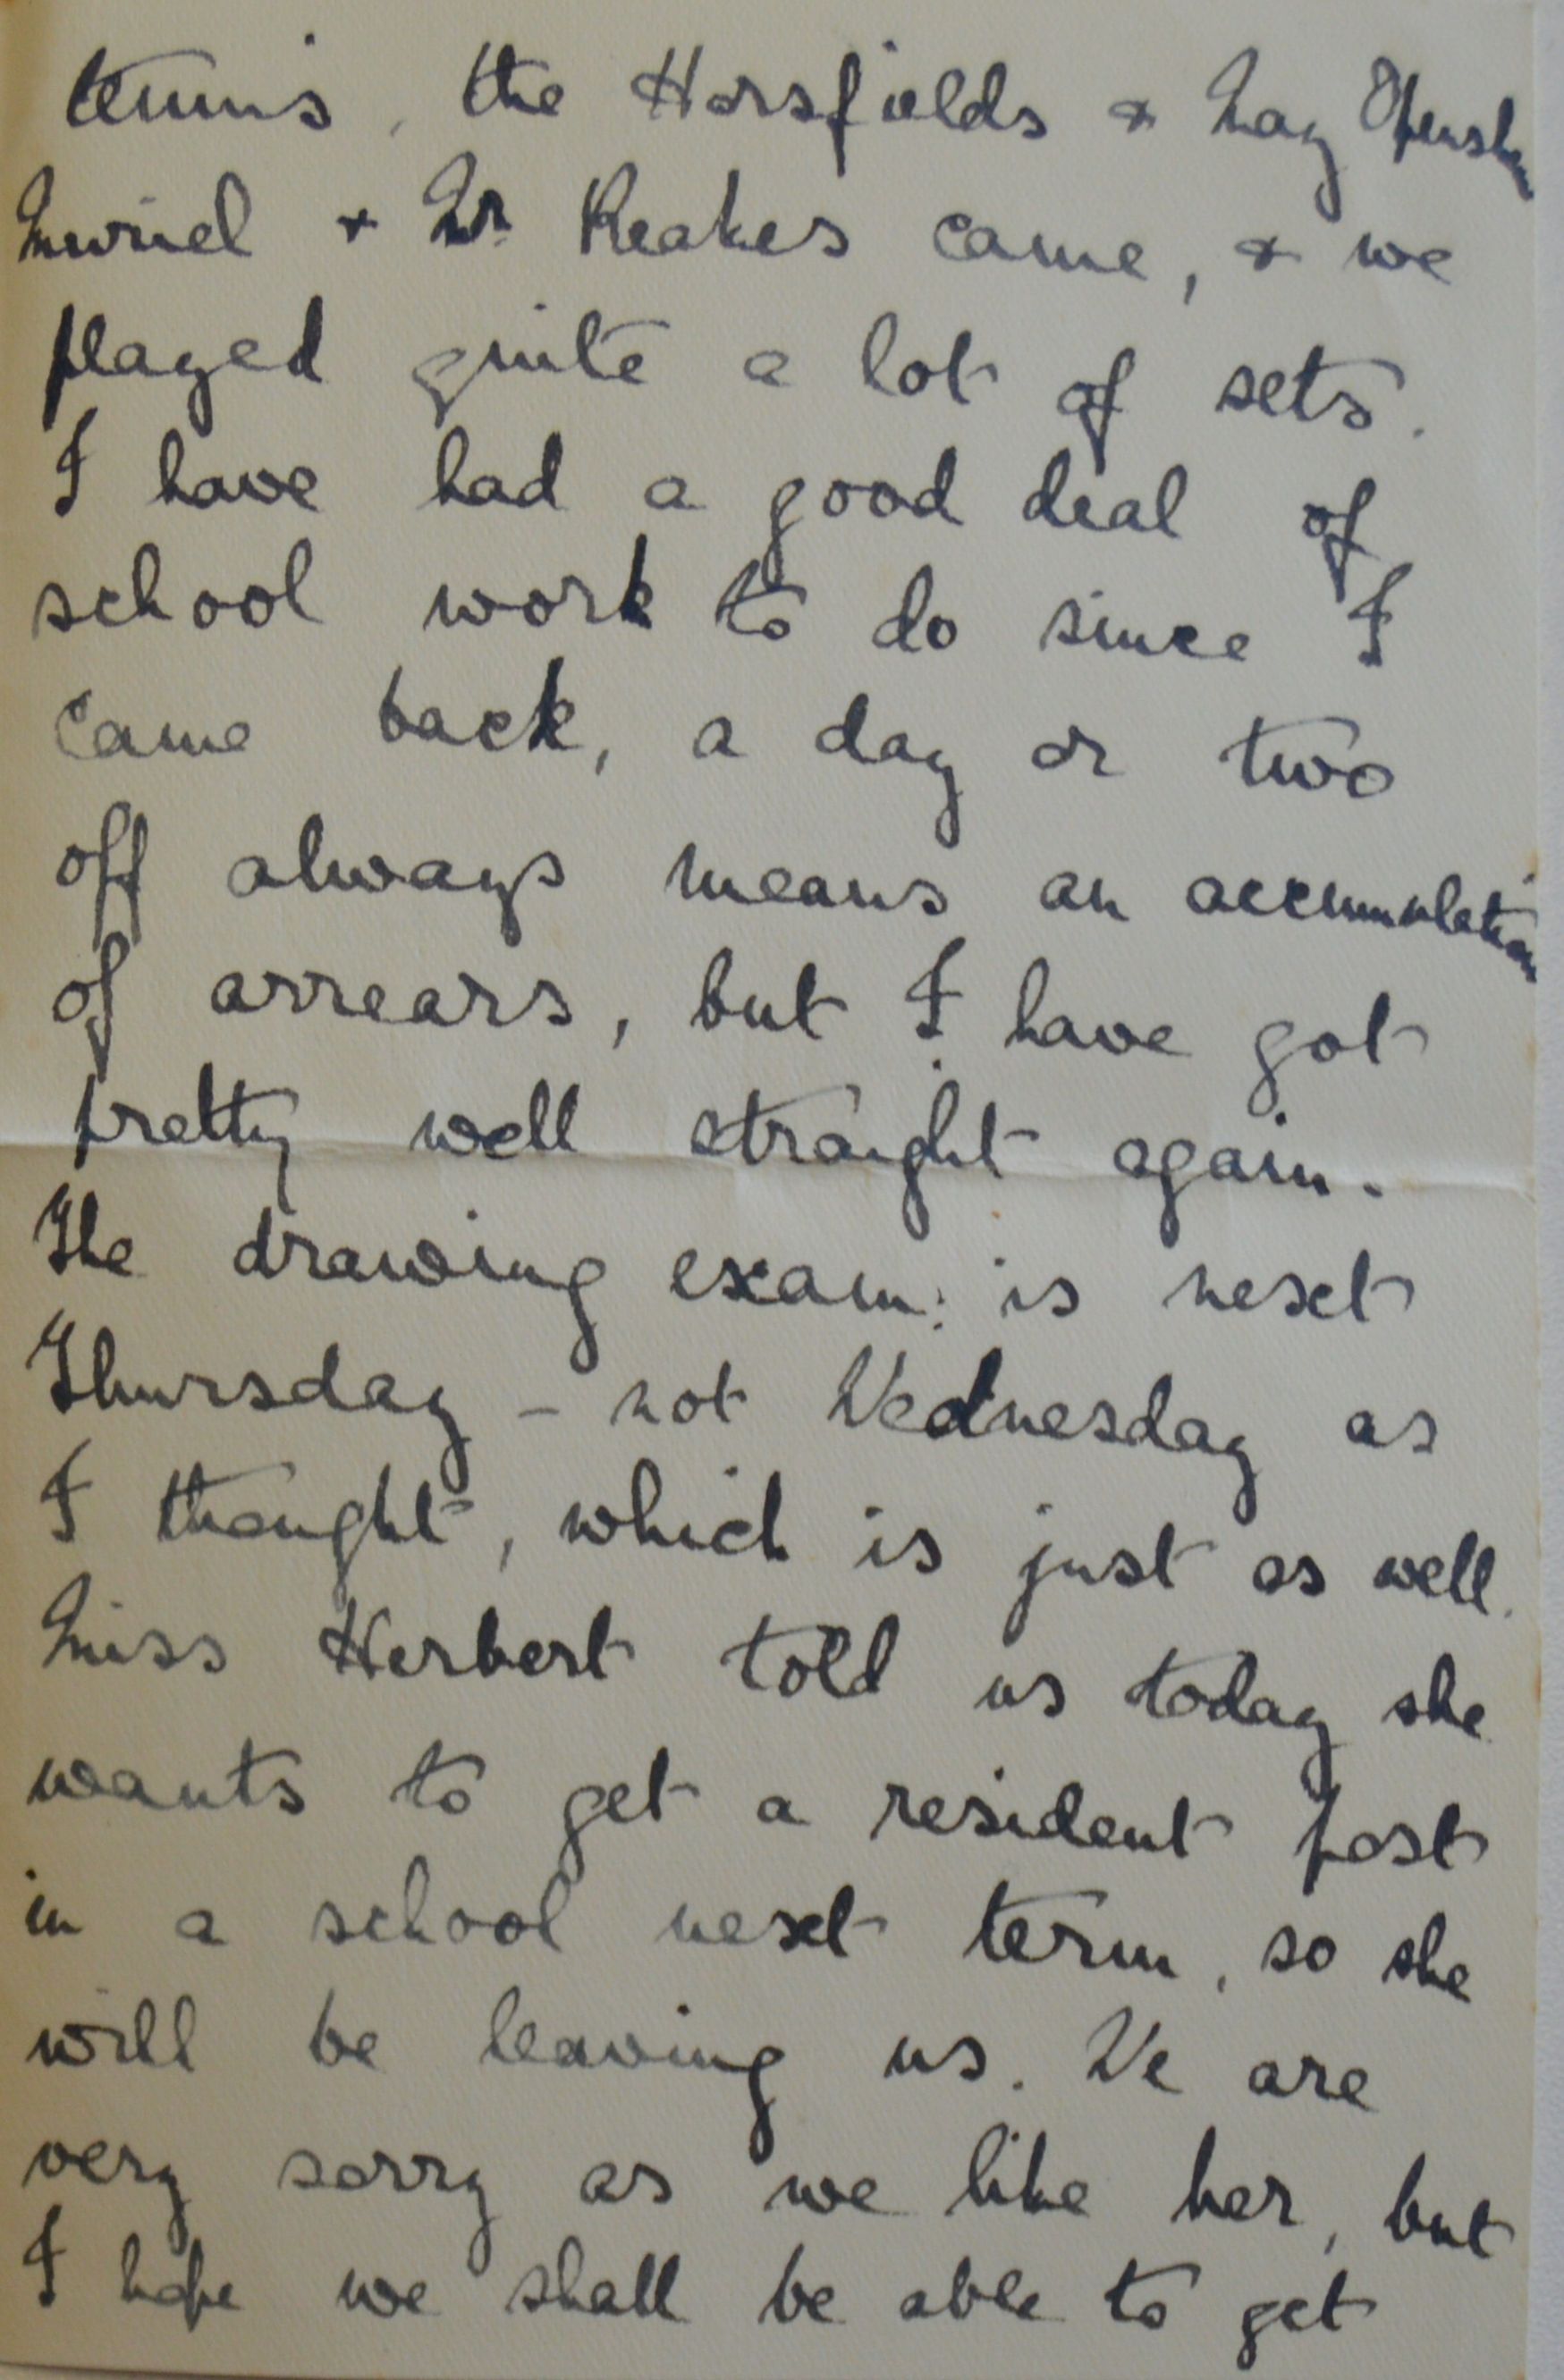 tennis, the Horsfields & May Openshaw
Muriel & Mr. Reakes came, & we
played quite a lot of sets.
I have had a good deal of
school work to do since I
came back, a day or two
off always means an accumulation
of arrears, but I have got
pretty well straight again.
The drawing exam: is next
Thursday – not Wednesday as
I thought, which is just as well.
Miss Herbert told us today she
wants to get a resident post
in a school next term, so she
will be leaving us. We are
very sorry as we like her, but
I hope we shall be able to get